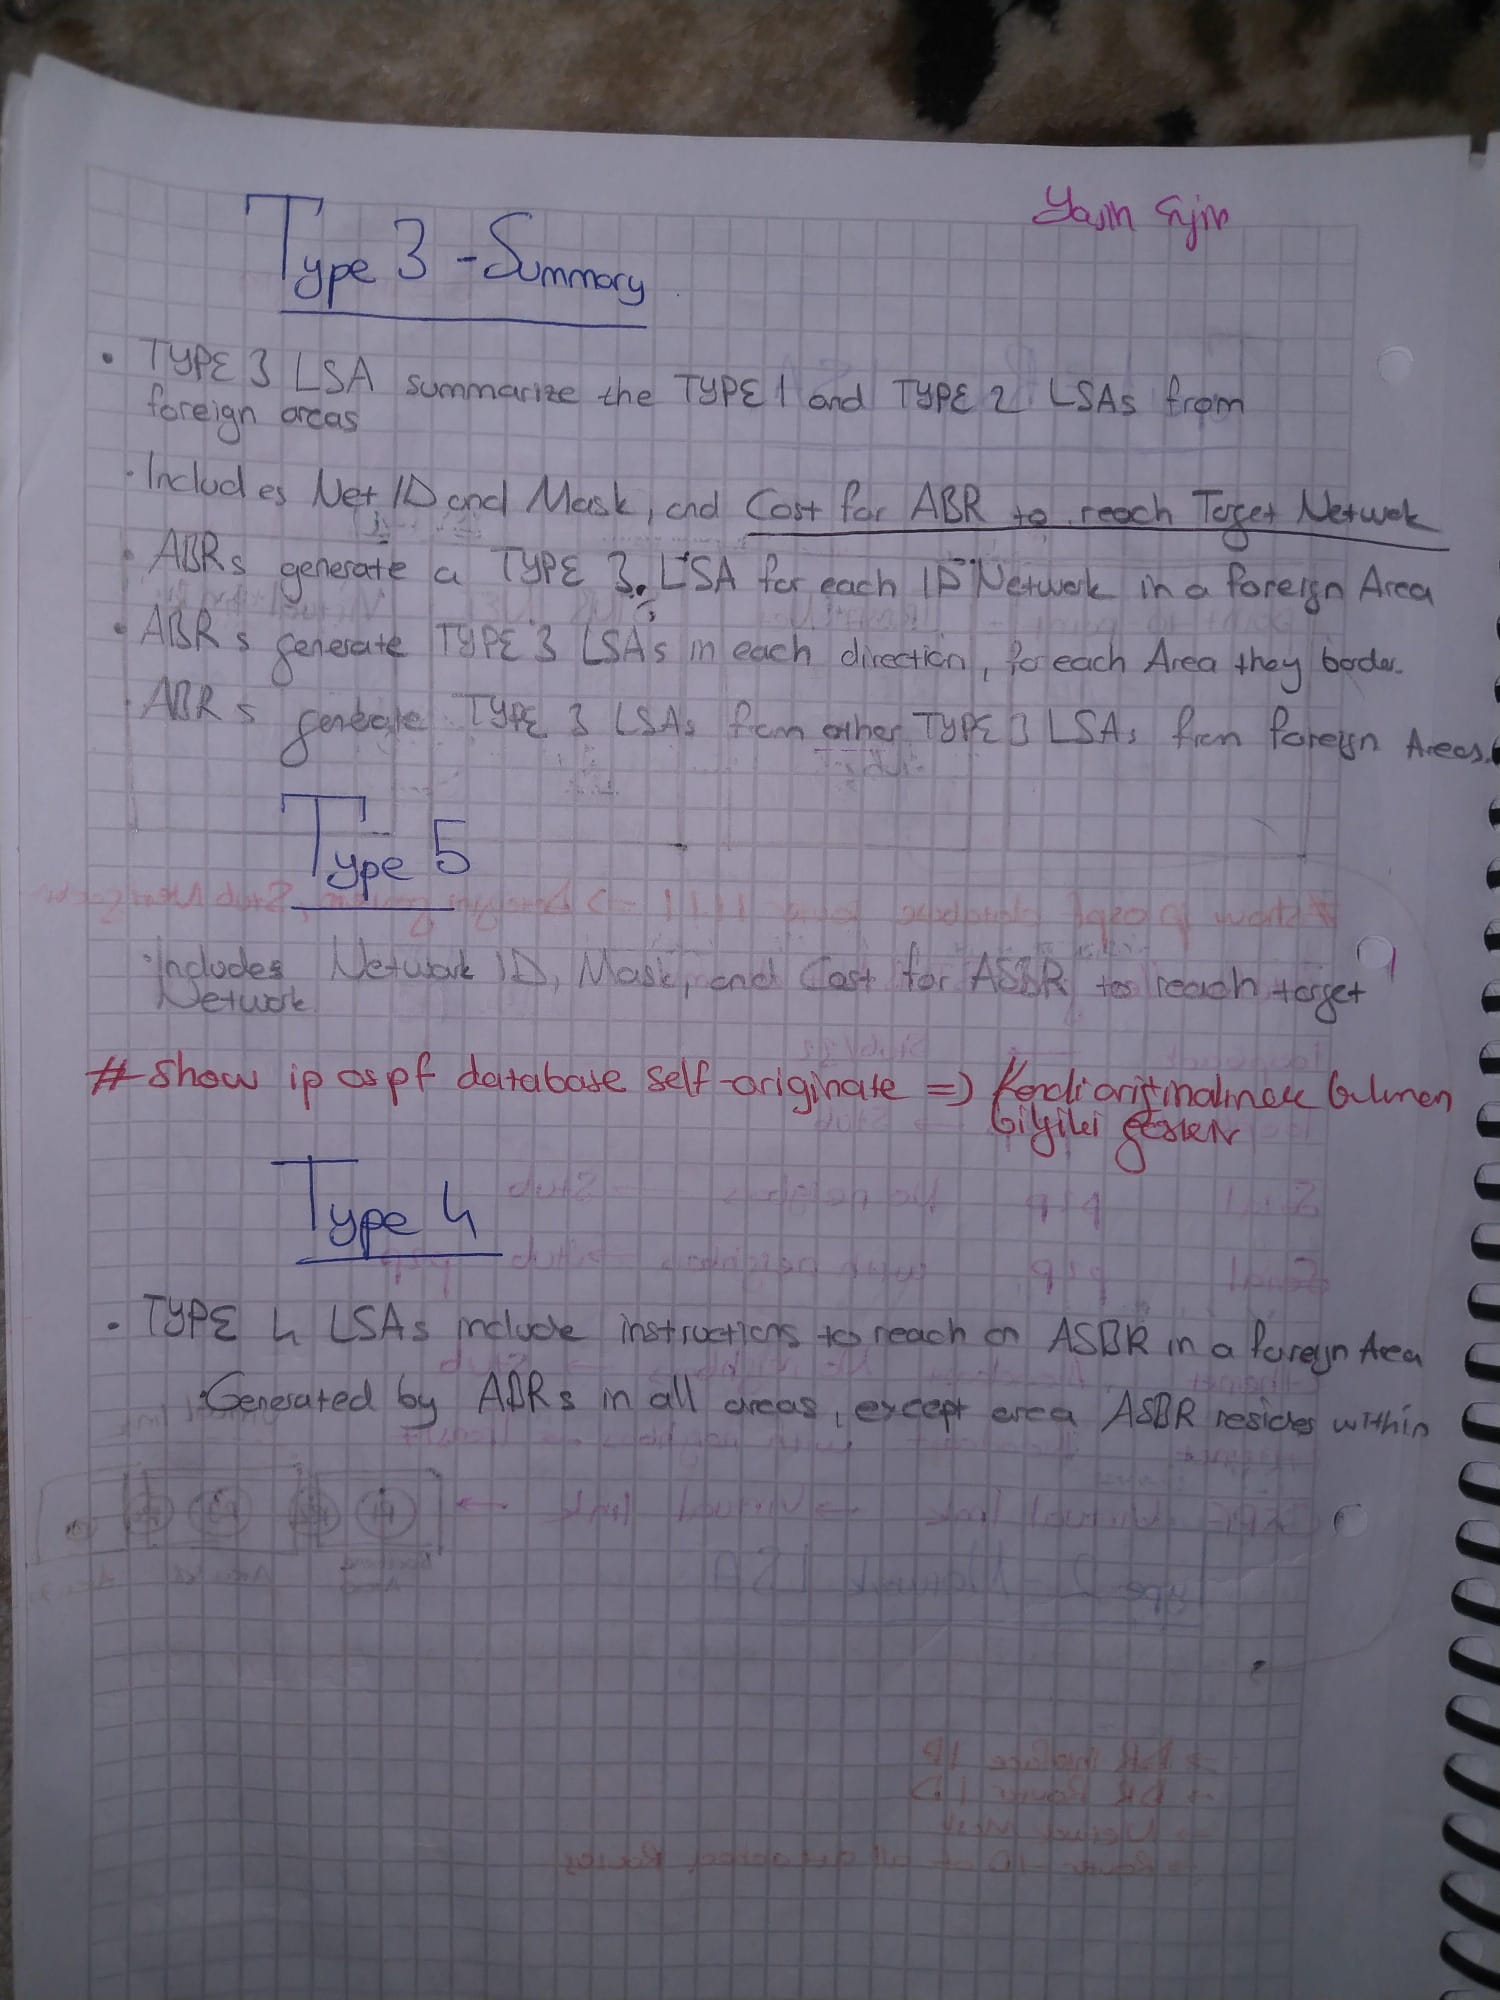 Type 3 - Summary
• TYPE 3 LSA summarize the TYPE 1 and TYPE 2 LSAs from
foreign areas
• Includes Net ID and Mask, and Cost for ABR to reach Target Network
• ABRs generate a TYPE 3 LSA for each IP Network in a foreign Area
• ABRs generate TYPE 3 LSAs in each direction, for each Area they border.
• ABRs generate TYPE 3 LSAs from other TYPE 3 LSAs from foreign Areas.
Type 5
• Includes Network ID, Mask, and Cost for ASBR to reach target
Network
# Show ip ospf database self-originate => Kendi
Type 4
• TYPE 4 LSAs include instructions to reach an ASBR in a foreign Area
• Generated by ABRs in all areas, except area ASBR resides within